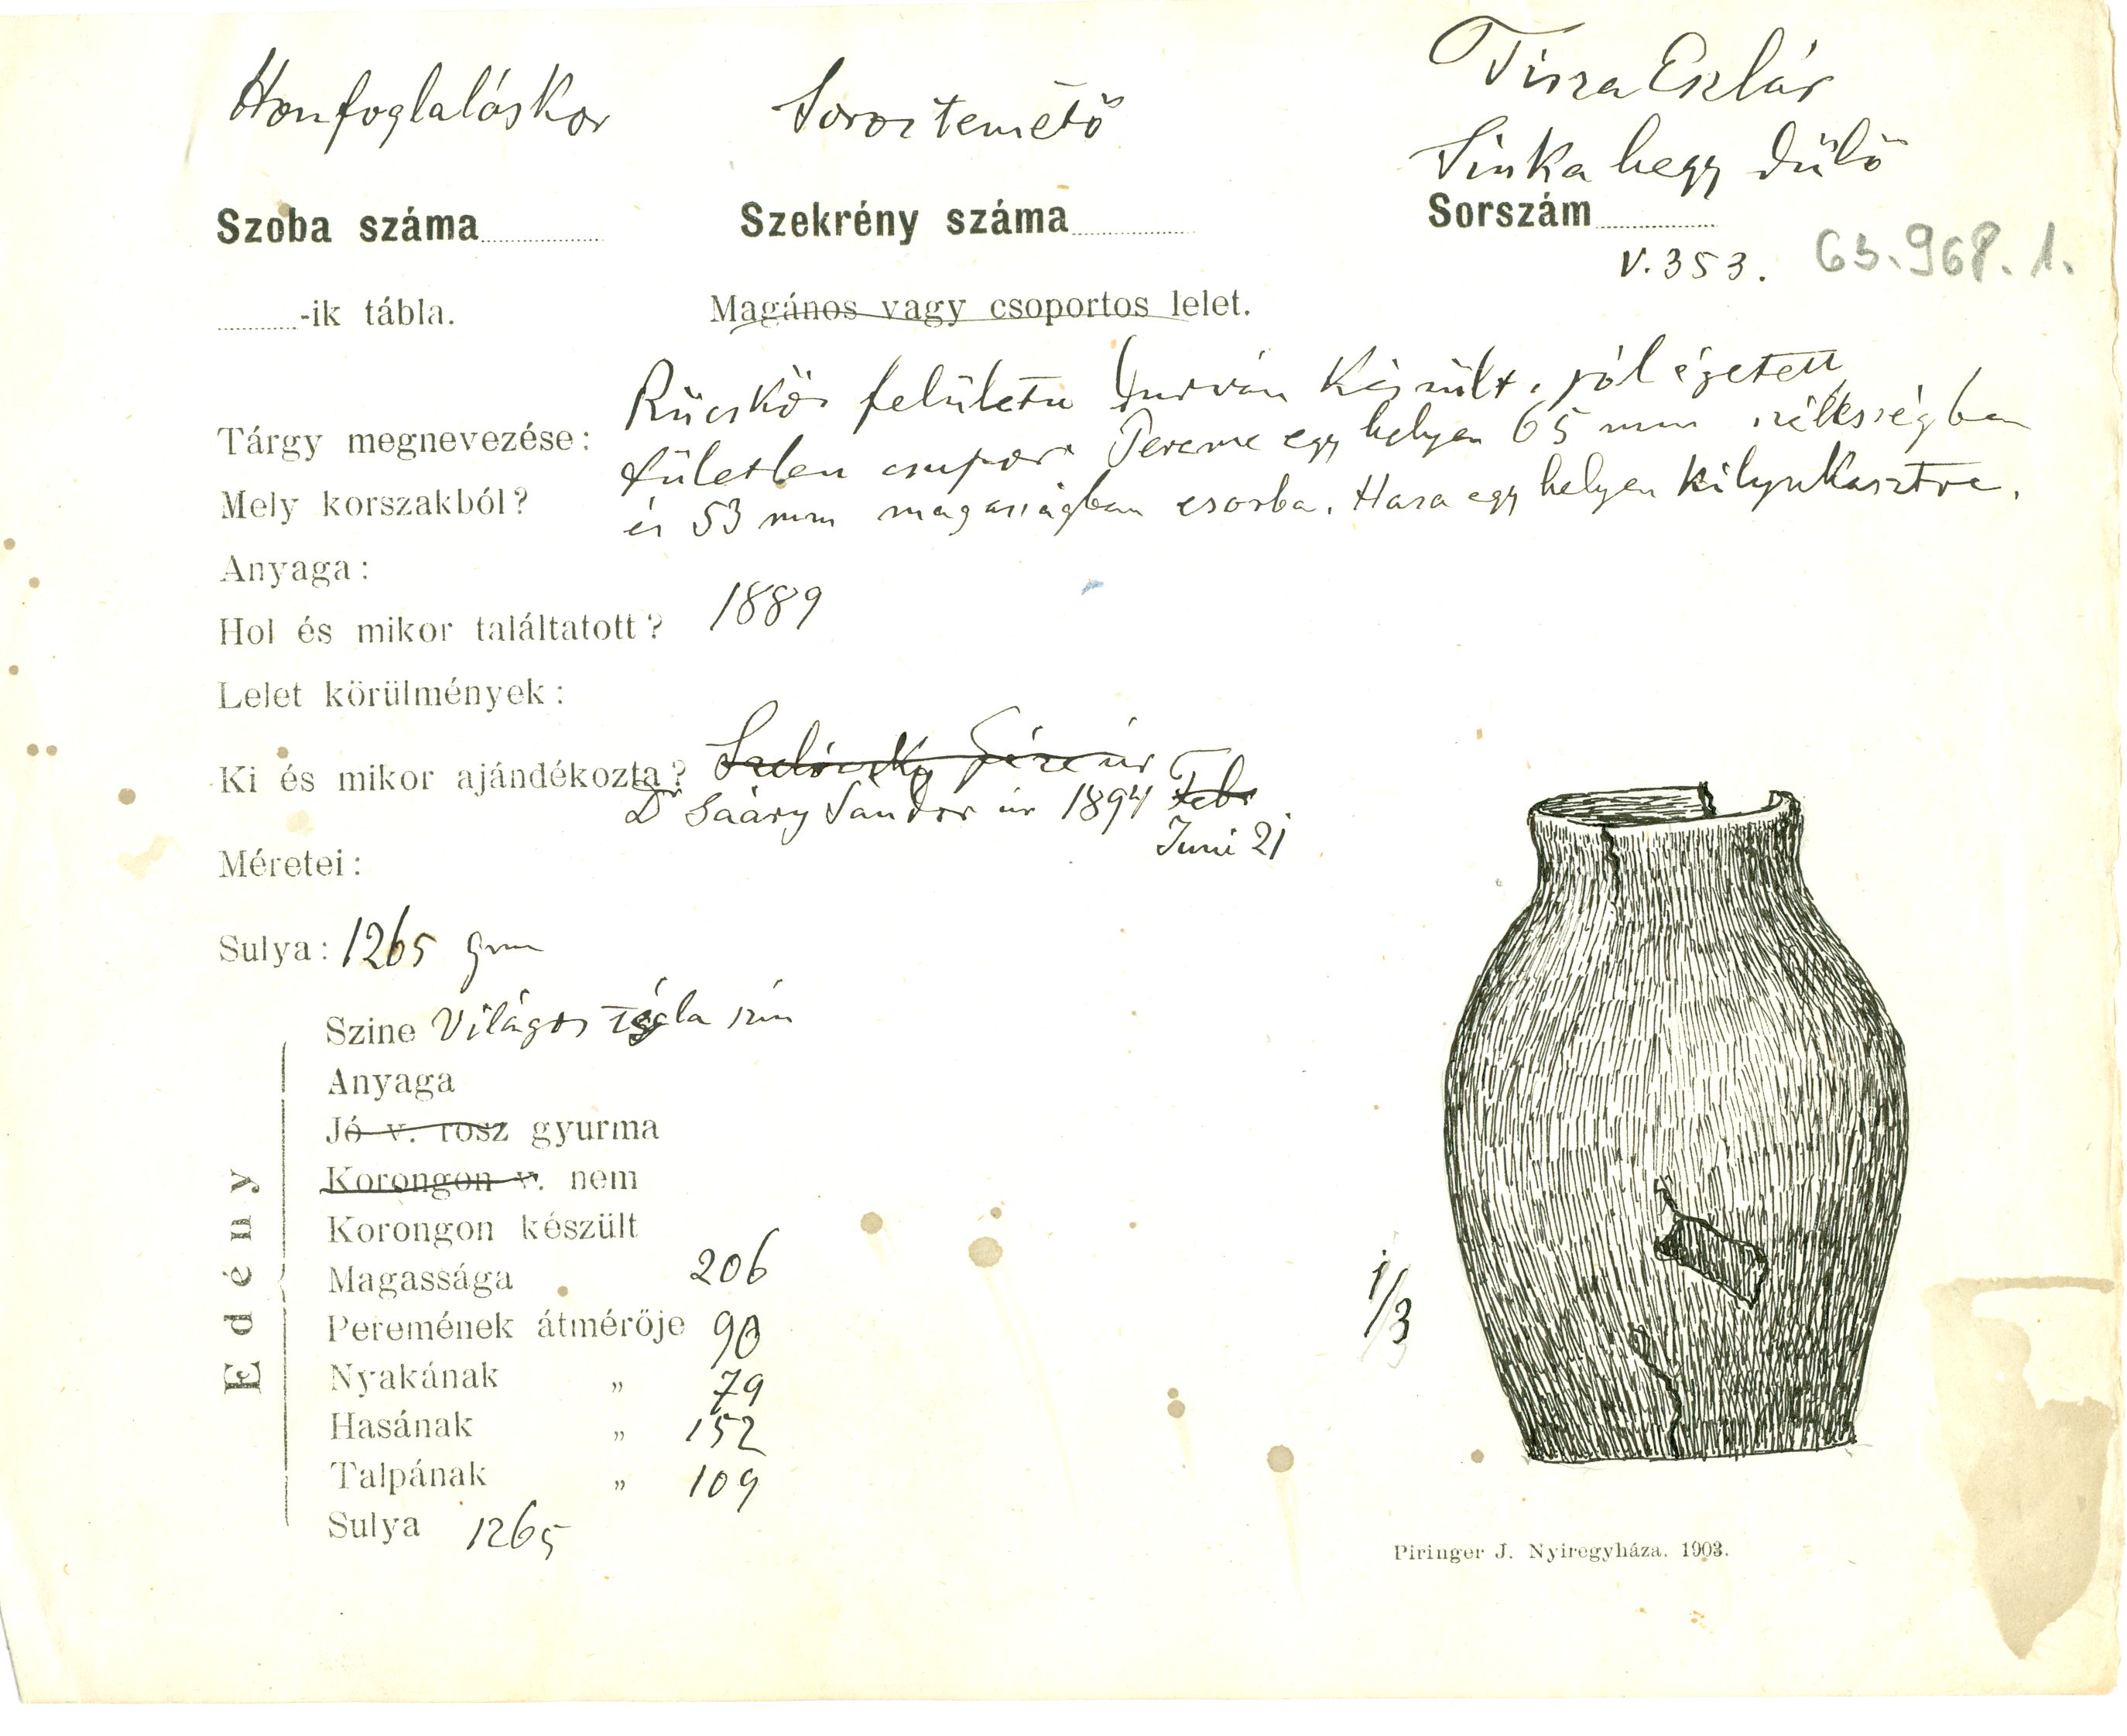 Honfoglaláskor
Soros temető
Tisza Eszlár
Sinka hegy dűlő
Szoba száma
Szekrény száma
Sorszám
V. 353.
63.968.1.
-ik tábla.
Magános vagy csoportos lelet.
Rücskös felületű durván készült, jól égetett
Tárgy megnevezése:
fületlen csupor. Pereme egy helyen 65 mm szélességben
Mely korszakból?
és 53 mm magasságban csorba. Hasa egy helyen kilyukasztva.
Anyaga:
Hol és mikor találtatott? 1889
Lelet körülmények:
Ki és mikor ajándékozta? úr
Dr Sááry Sándor úr 1894 Febr
Juni 21
Méretei:
Sulya: 1265 grm
Szine Világos tégla szín
Anyaga
Jó v. rosz gyurma
Korongon v. nem
Korongon készült
Edény
Magassága 206
Peremének átmérője 90
Nyakának „ 79
Hasának „ 152
Talpának „ 109
Sulya 1265
1/3
Piringer J. Nyiregyháza. 1903.